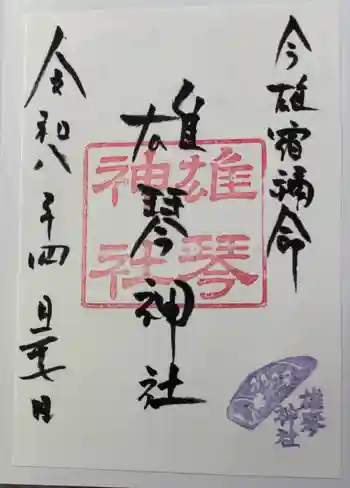 今雄宿禰命
雄琴神社
雄琴神社
令和八年四月二十七日
雄琴
神社